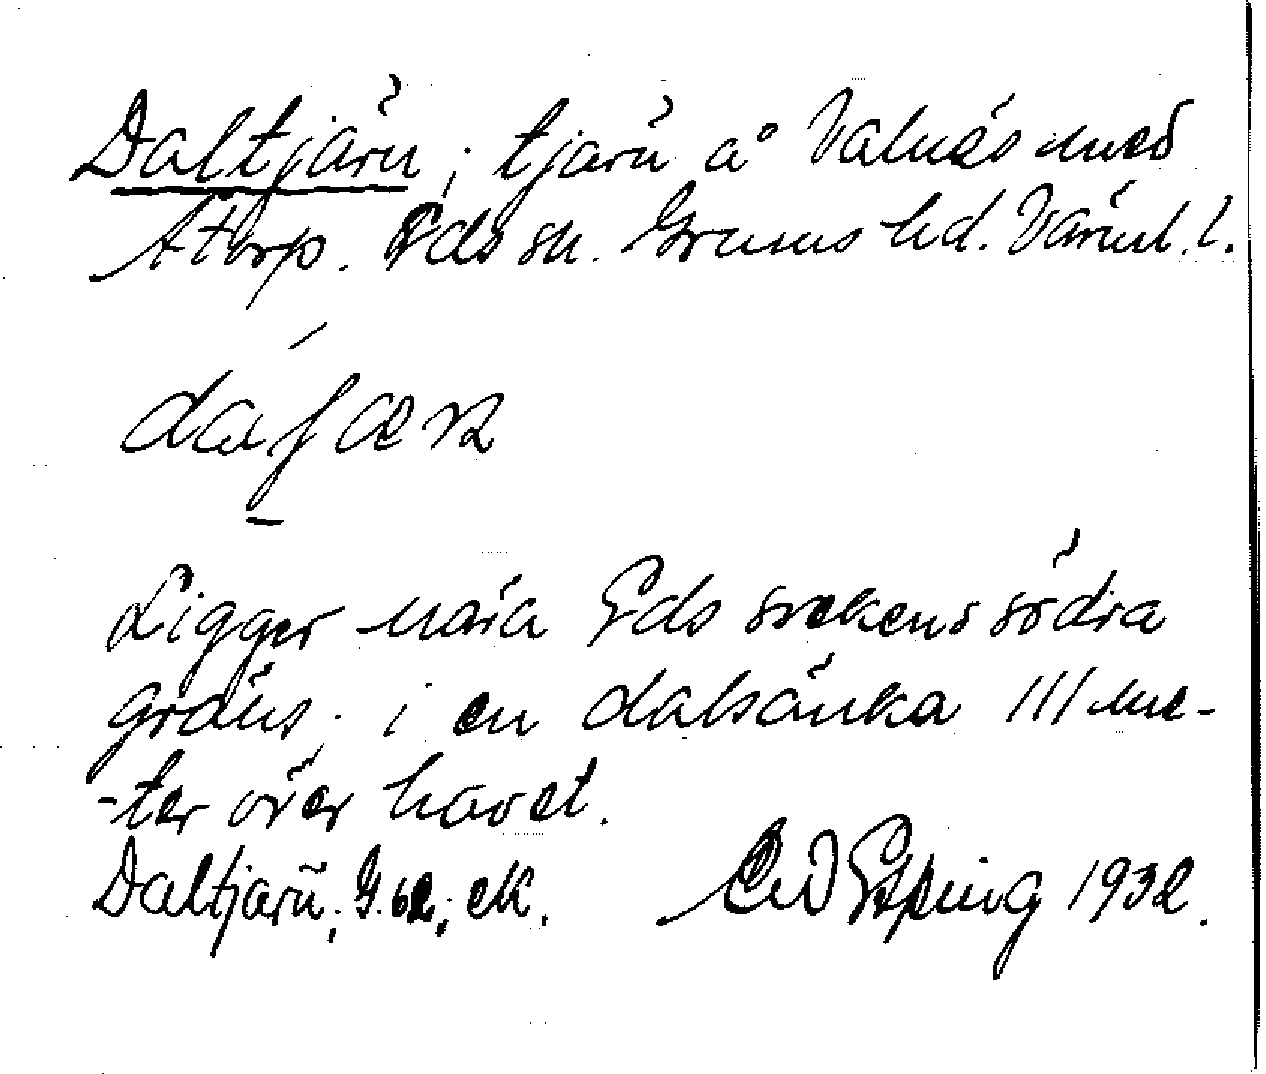 Daltjärn; tjärn å Valnäs med
Åtorp. Eds sn. Grums hd. Värml. l.
Ligger nära Eds sockens södra
gräns; i en dalsänka 111 me-
-ter över havet.
Daltjärn; G. 62; ek. 1932.